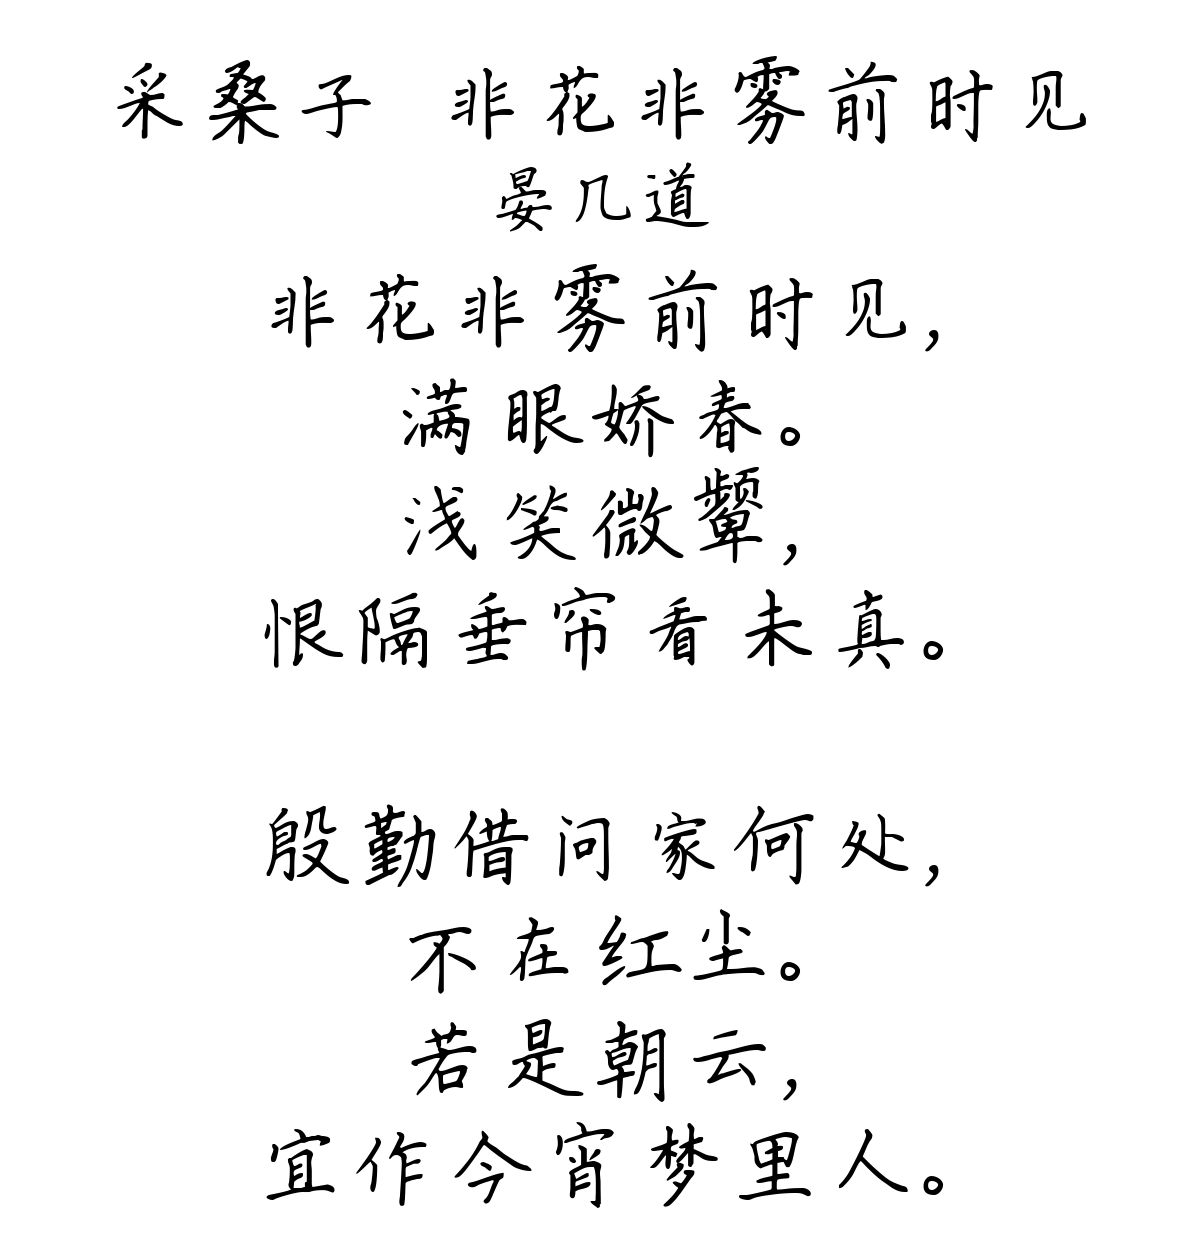 采桑子 非花非雾前时见
晏几道
非花非雾前时见，
满眼娇春。
浅笑微颦，
恨隔垂帘看未真。
殷勤借问家何处，
不在红尘。
若是朝云，
宜作今宵梦里人。